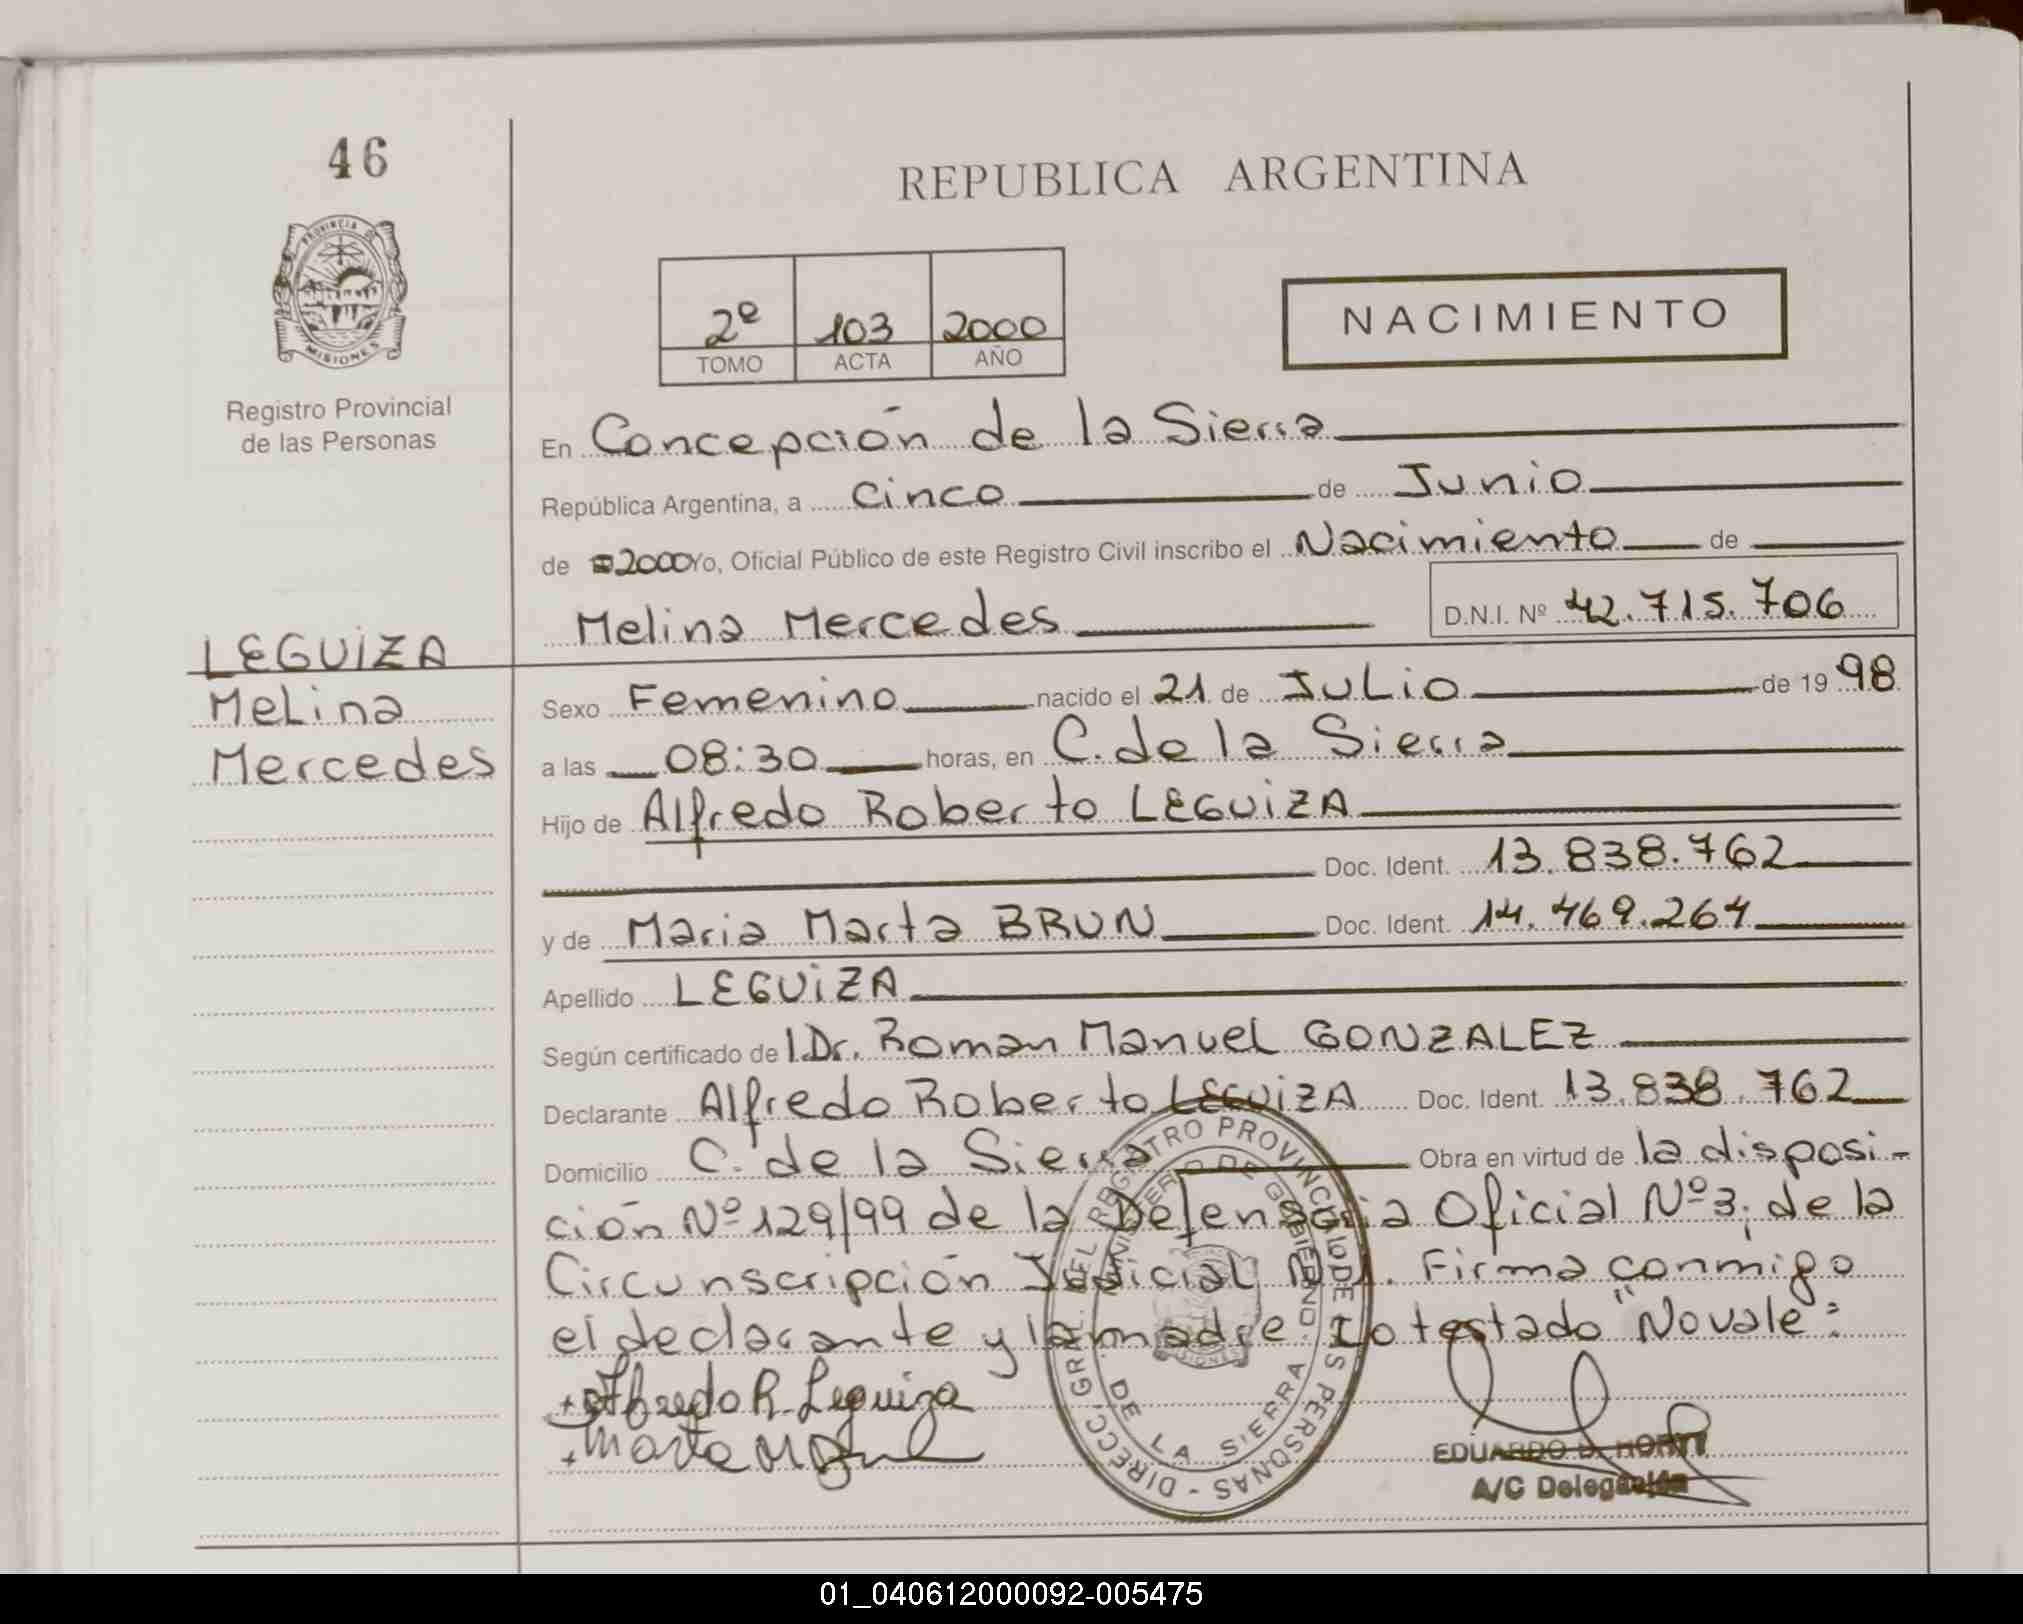 46
REPUBLICA ARGENTINA
PROVINCIA DE
MISIONES
Registro Provincial
de las Personas
2º 103 2000
TOMO ACTA AÑO
NACIMIENTO
En Concepción de la Sierra
República Argentina, a cinco de Junio
de 2000 Yo, Oficial Público de este Registro Civil inscribo el Nacimiento de
Melina Mercedes D.N.I. Nº 42.715.706
LEGUIZA
Melina
Mercedes
Sexo Femenino nacido el 21 de Julio de 1998
a las 08:30 horas, en C. de la Sierra
Hijo de Alfredo Roberto LEGUIZA
Doc. Ident. 13.838.762
y de Maria Marta BRUN Doc. Ident. 14.469.264
Apellido LEGUIZA
Según certificado de l.Dr. Roman Manuel GONZALEZ
Declarante Alfredo Roberto LEGUIZA Doc. Ident. 13.838.762
Domicilio C. de la Sierra Obra en virtud de la disposi-
ción Nº 129/99 de la Defensoria Oficial Nº3, de la
Circunscripción Judicial Firma conmigo
el declarante y la madre lo testado "No vale":
Alfredo R. Leguiza
Marta M
DIRECC. GRAL. DEL REGISTRO PROVINCIAL DE LAS PERSONAS -
MINISTERIO DE GOBIERNO.
DE LA SIERRA
MISIONES
EDUARDO D.
A/C Delegación
01_040612000092-005475